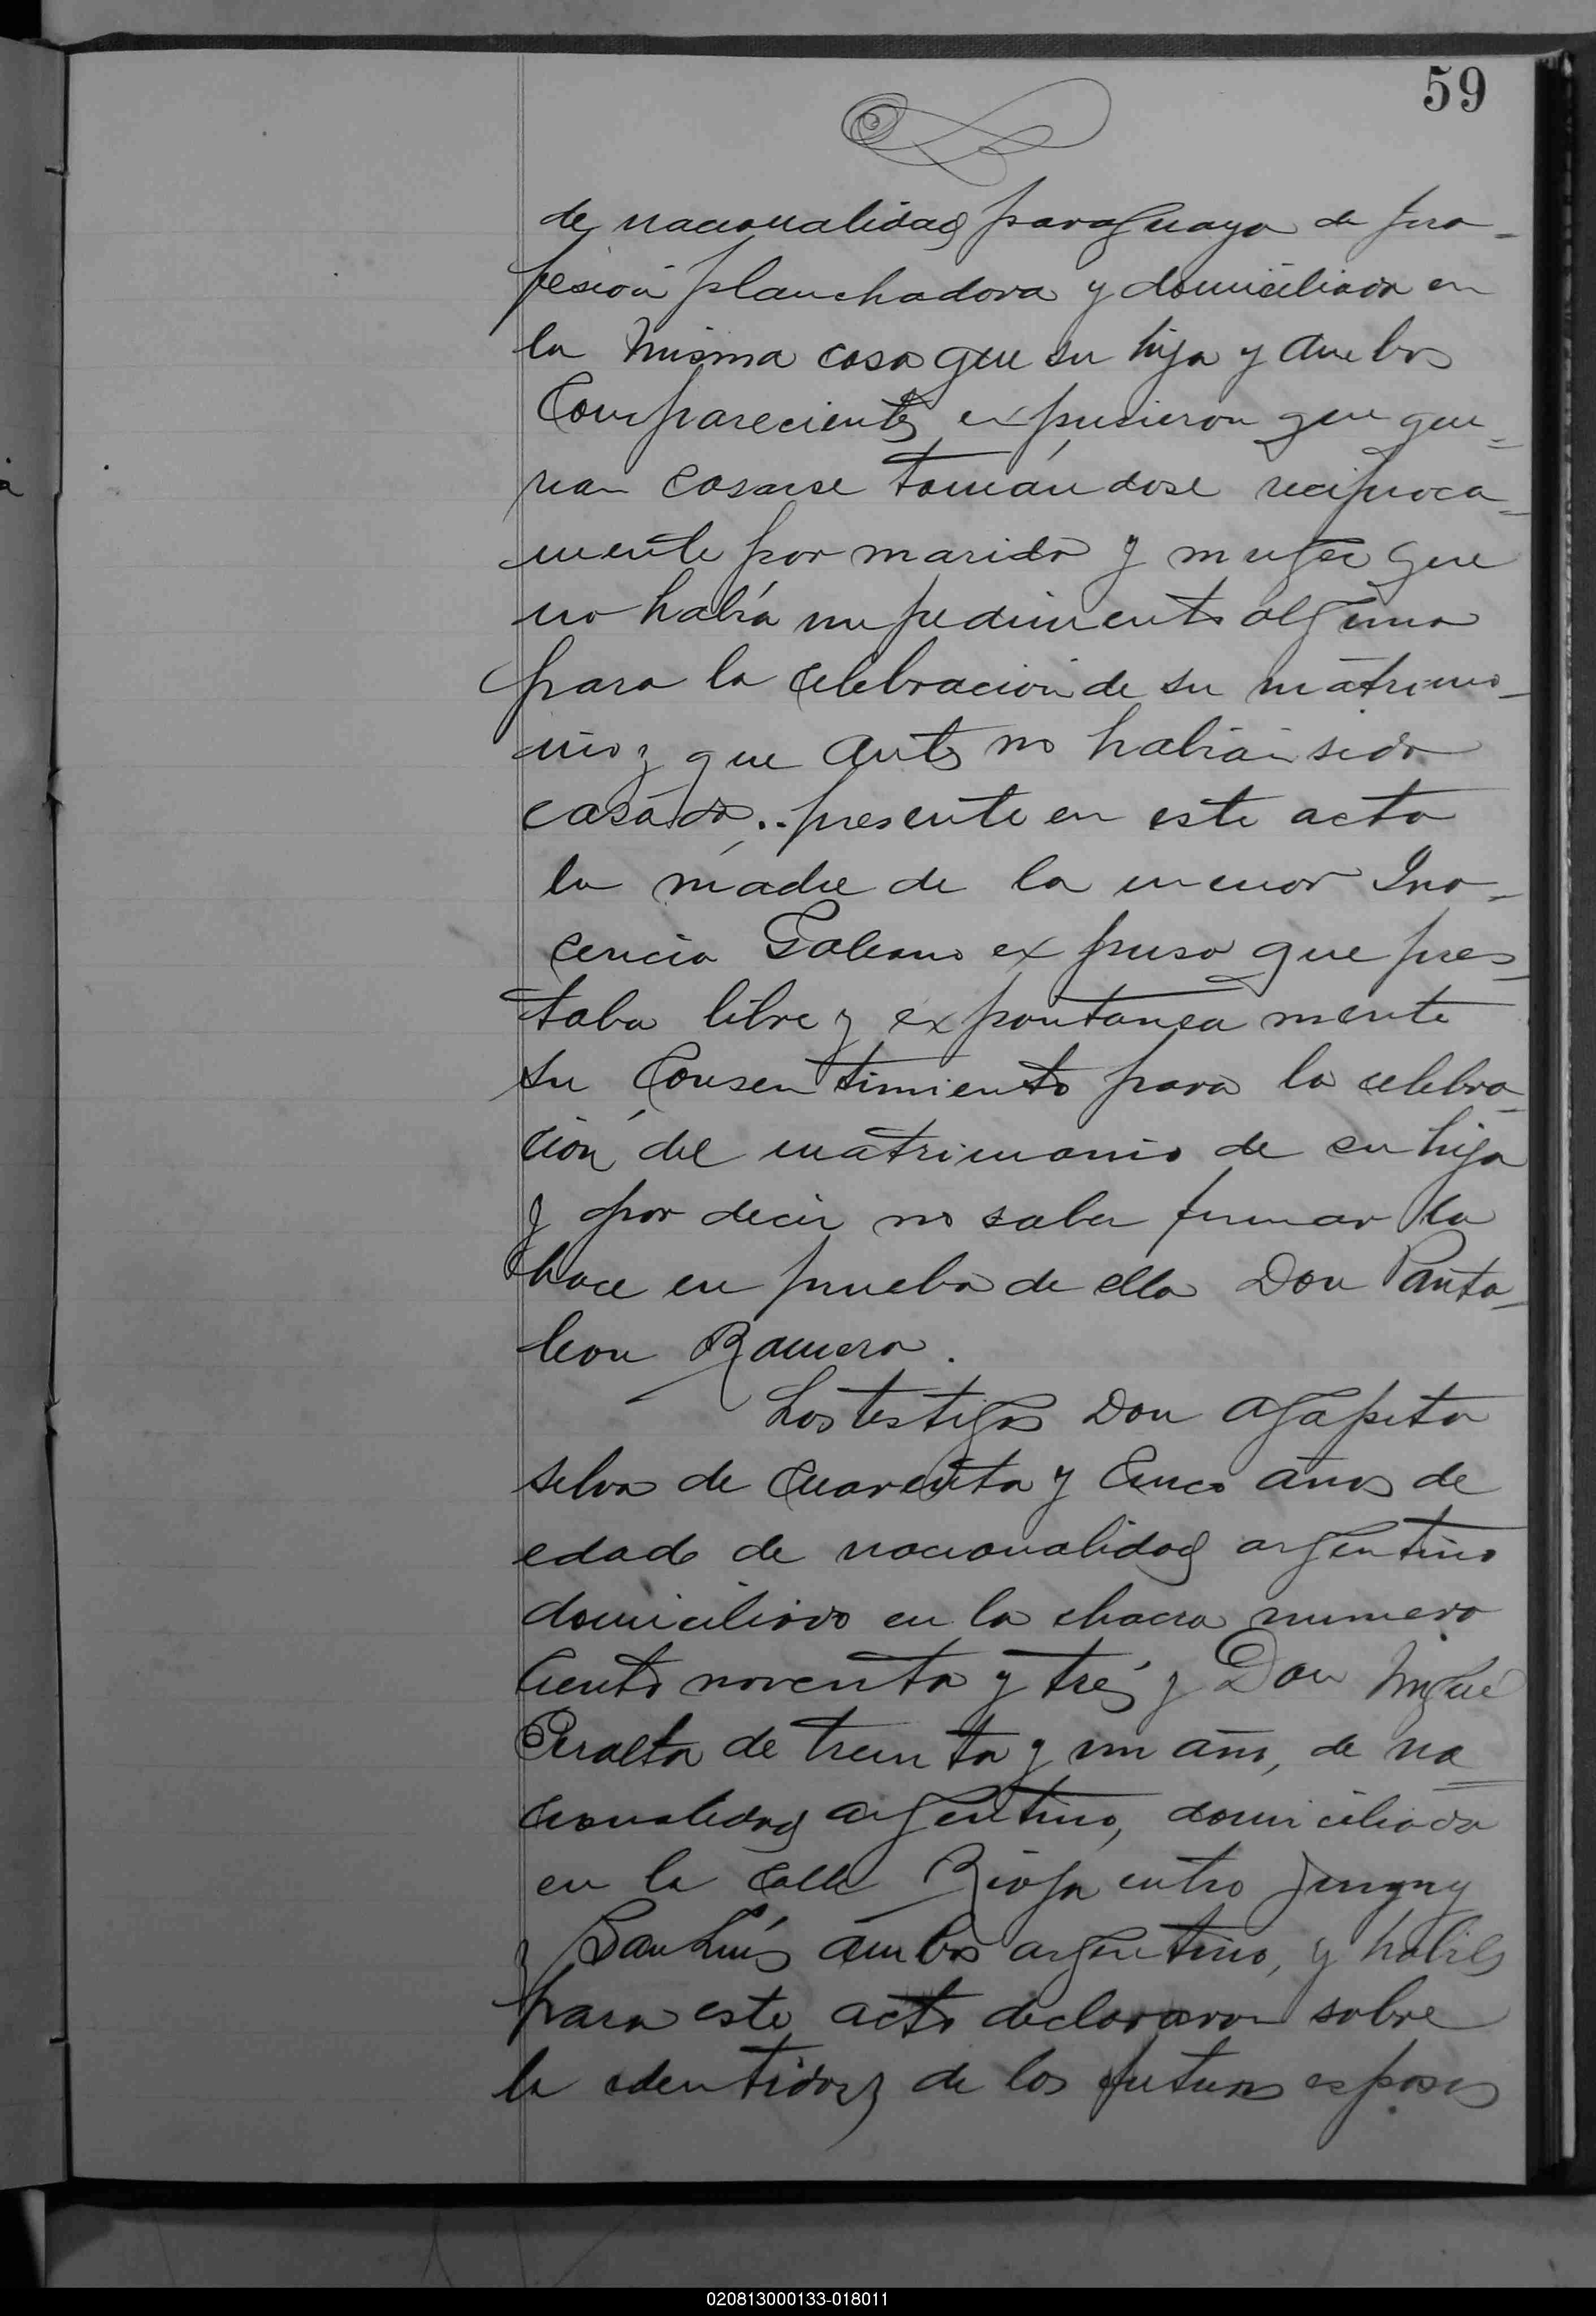 59
de nacionalidad paraguaya de pro-
fesión planchadora y domiciliada en
la misma casa que su hija y ambos
Comparecientes expusieron que que-
rian casarse tomándose reciproca-
mente por marido y muger que
no había impedimento alguno
para la celebración de su matrimo-
nio y que antes no habían sido
casado.. presente en este acto
la madre de la menor Ino-
cencia Galeano expuso que pres-
taba libre y expontanea mente
su Consentimiento para la celebra-
ción del matrimonio de su hija
y por decir no saber firmar lo
hace en prueba de ello Don Panta-
leon Ramero.
Los testigos Don Agapito
Selva de Cuarenta y Cinco años de
edad de nacionalidad argentino
domiciliado en la chacra numero
Ciento noventa y trés y Don Miguel
Peralta de treinta y un año, de na-
cionalidad argentino, domiciliado
en la Calle Rioja entre Jujuy
y San Luís ambos argentino, y habiles
para este acto declararon sobre
la identidad de los futuros esposos
020813000133-018011